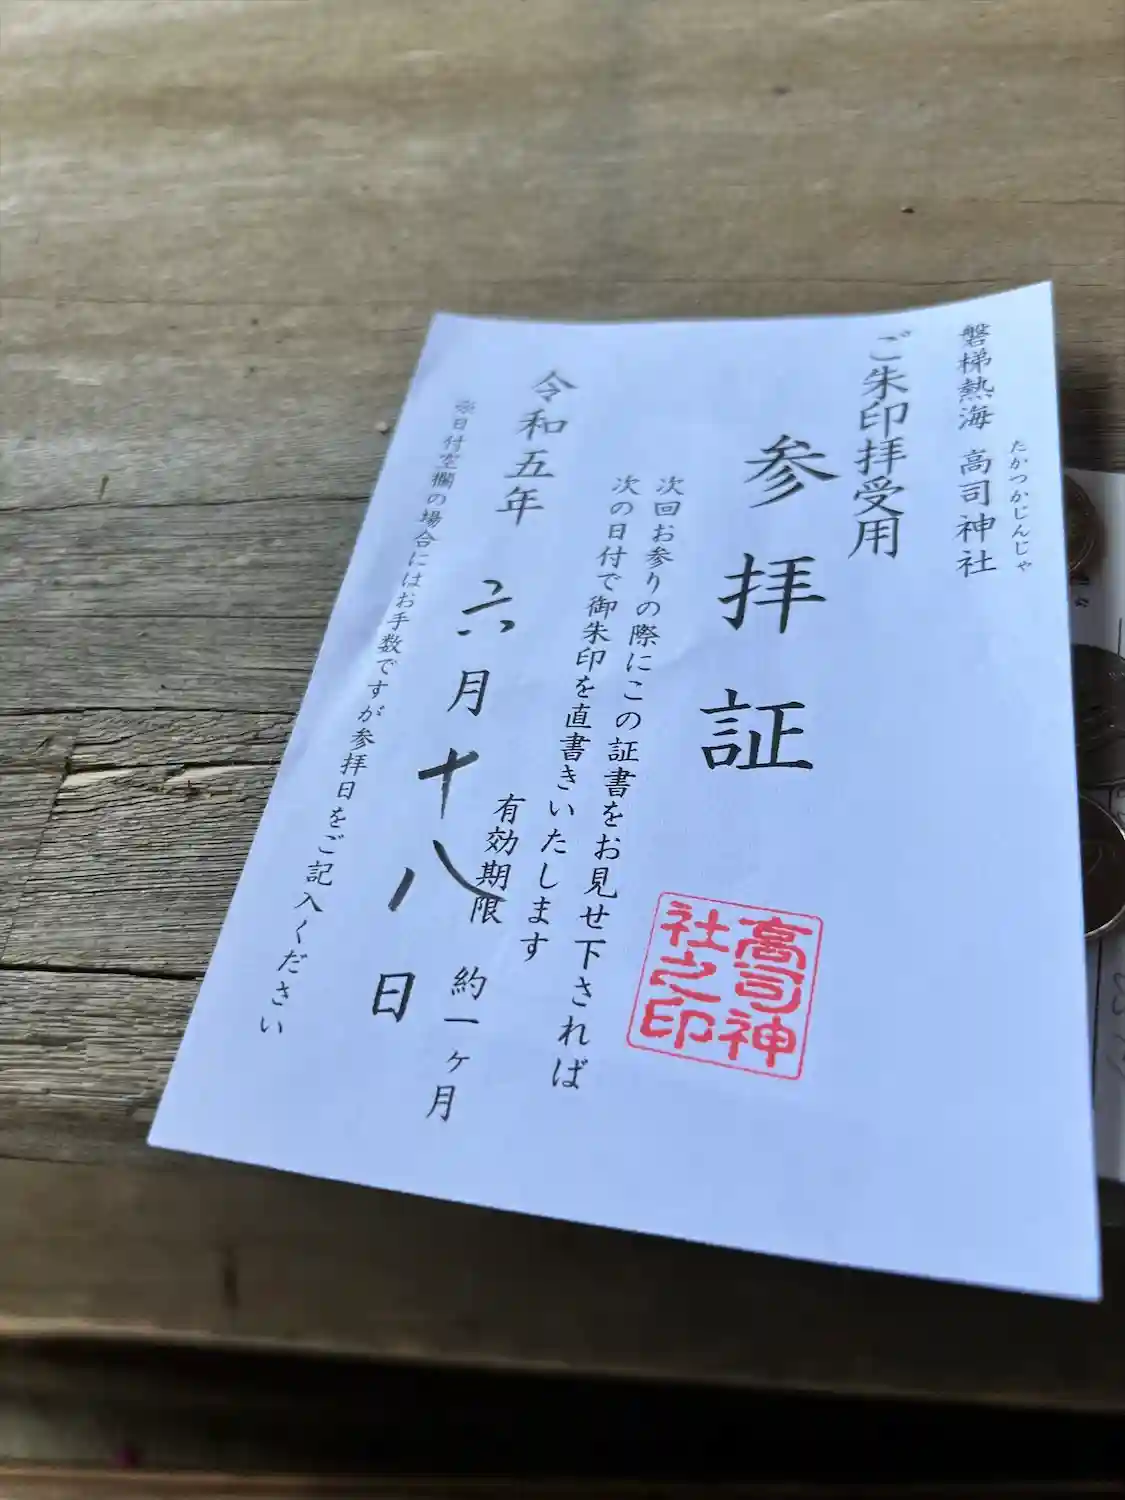 磐梯熱海 高司神社
たかつかじんじゃ
ご朱印拝受用
参拝証
次回お参りの際にこの証書をお見せ下されば
次の日付で御朱印を直書きいたします
有効期限 約一ヶ月
令和五年 六月十八日
日付空欄の場合にはお手数ですが参拝日をご記入ください
高司神
社之印